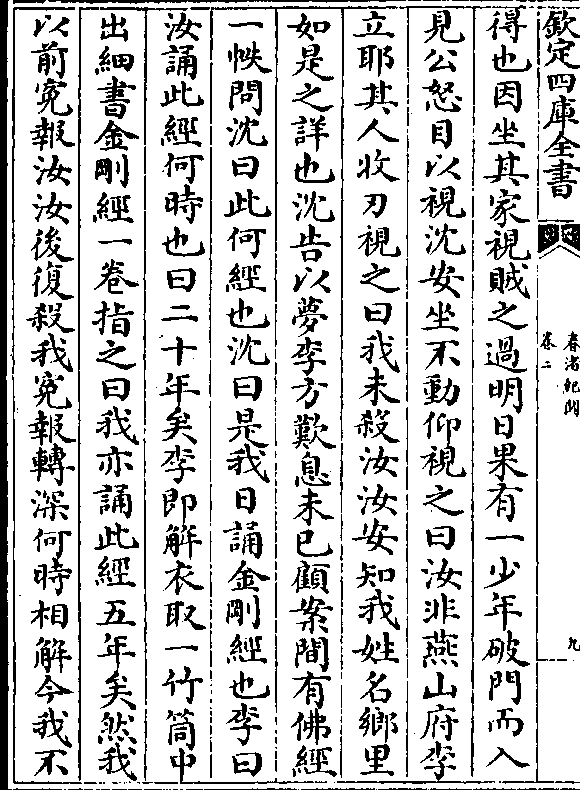 欽定四庫全書
春渚紀聞
卷二
九
得也因坐其家視賊之過明日果有一少年破門而入
見公怒目以視沈安坐不動仰視之曰汝非燕山府李
立耶其人收刃視之曰我未殺汝汝安知我姓名鄉里
如是之詳也沈告以夢李方歎息未已顧案間有佛經
一帙問沈曰此何經也沈曰是我日誦金剛經也李曰
汝誦此經何時也曰二十年矣李即解衣取一竹筒中
出細書金剛經一卷指之曰我亦誦此經五年矣然我
以前寃報汝汝後復殺我寃報轉深何時相解今我不